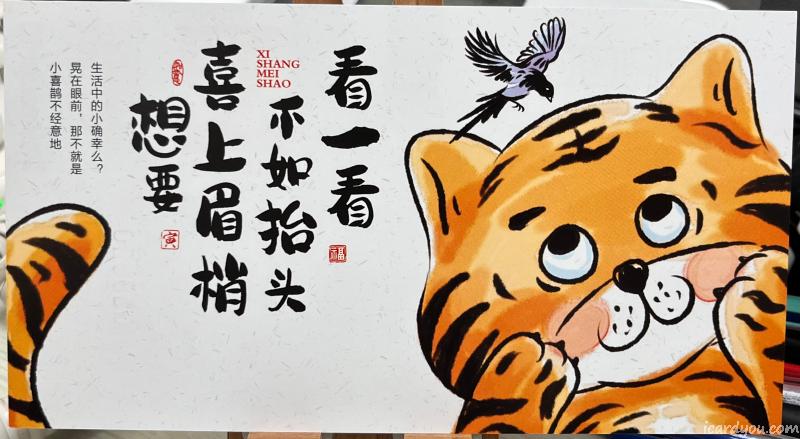 小喜鹊不经意地
晃在眼前，那不就是
生活中的小确幸么？
想要
寅
喜上眉梢
XI
SHANG
MEI
SHAO
不如抬头
看一看
福
icardyou.com